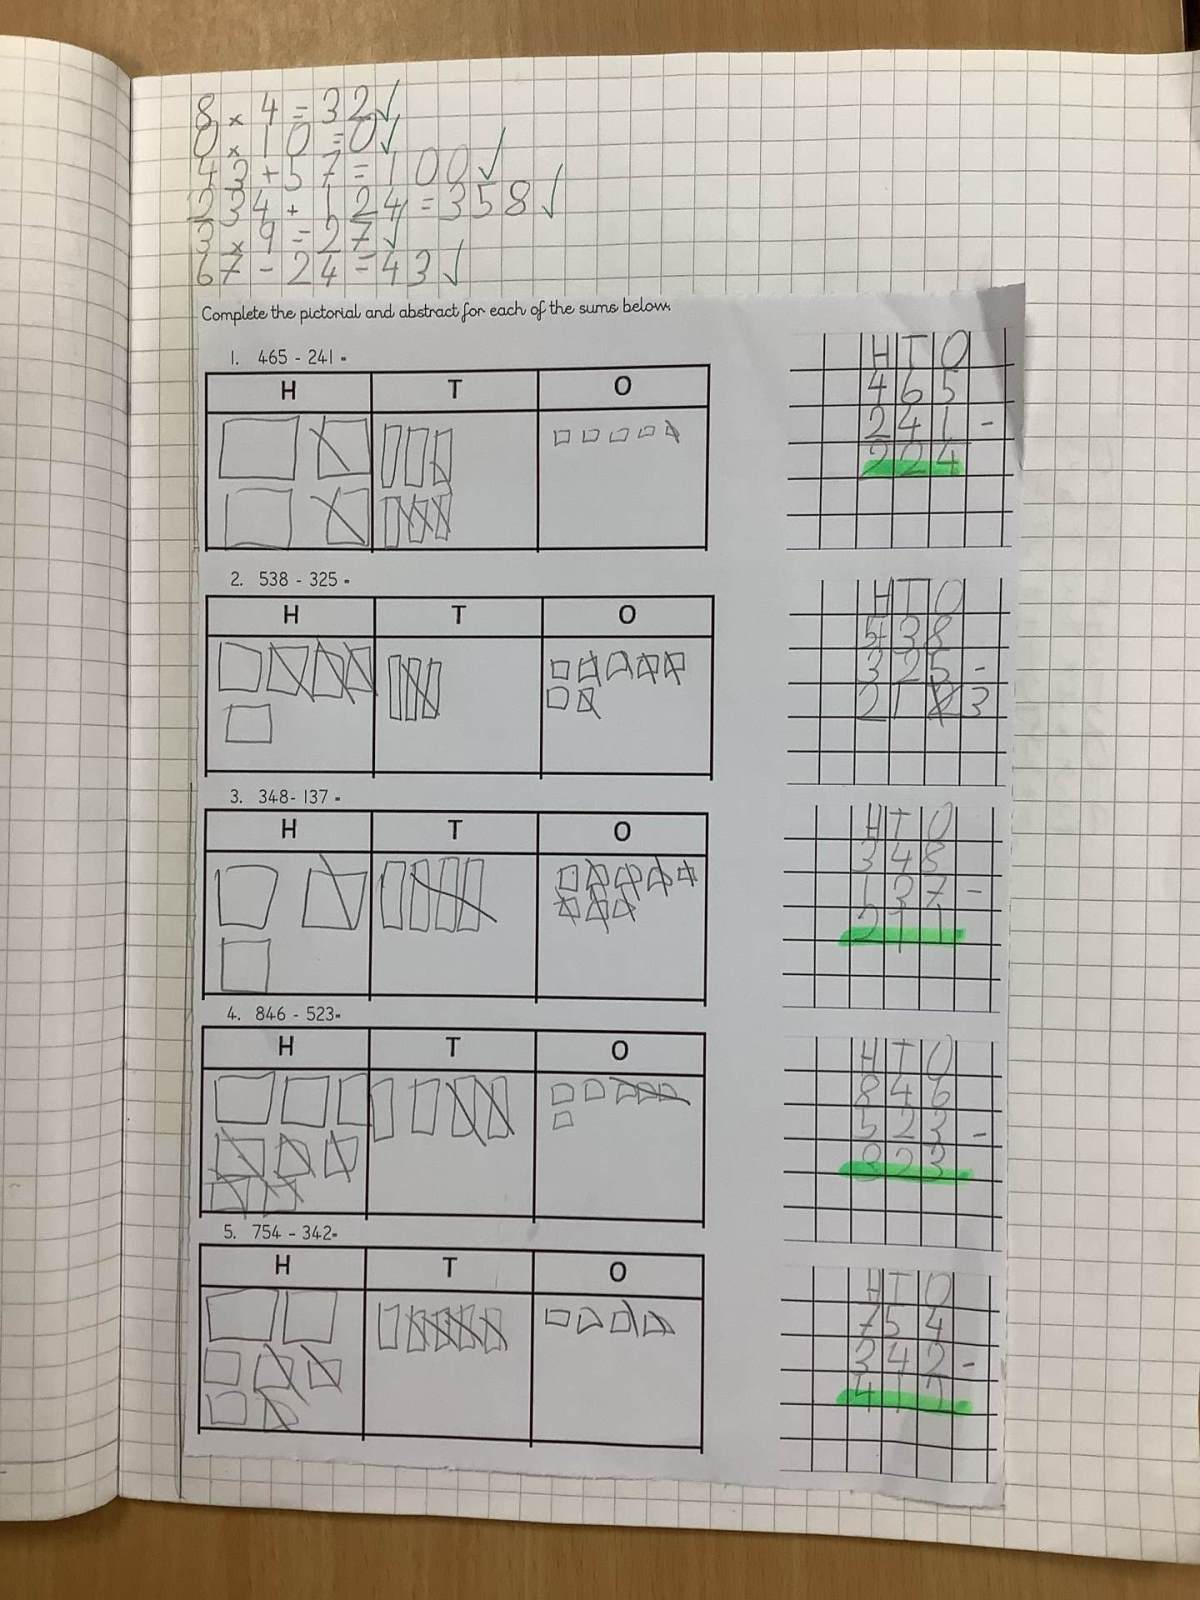 8 × 4 = 32 ✓
0 × 10 = 0 ✓
43 + 57 = 100 ✓
234 + 124 = 358 ✓
3 × 9 = 27 ✓
67 - 24 = 43 ✓
Complete the pictorial and abstract for each of the sums below.
1. 465 - 241 =
H T O
H T O
4 6 5
2 4 1 -
2 2 4
2. 538 - 325 =
H T O
H T O
5 3 8
3 2 5 -
2 1 3
3. 348- 137 =
H T O
H T O
3 4 8
1 3 7 -
2 1 1
4. 846 - 523=
H T O
H T O
8 4 6
5 2 3 -
3 2 3
5. 754 - 342=
H T O
H T O
7 5 4
3 4 2 -
4 1